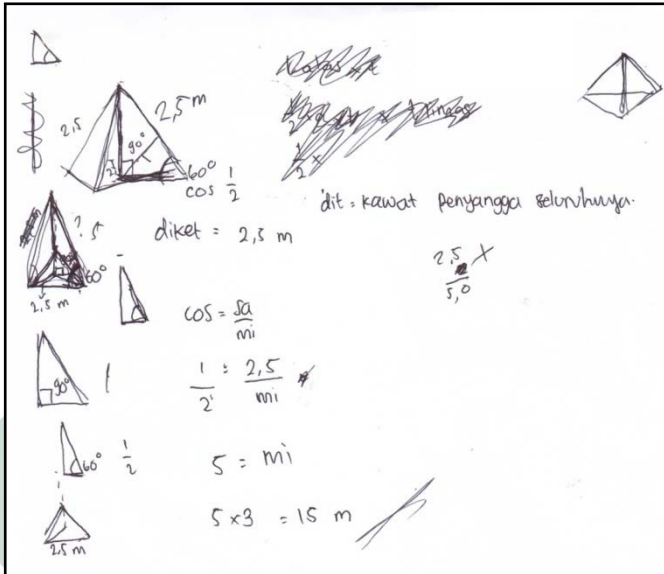 2,5
2,5 m
90°
60°
cos 1/2
dit = kawat penyangga seluruhnya.
diket = 2,5 m
? 5
60°
2,5 m
2,5 x
5,0
cos = sa/mi
90°
1/2 = 2,5/mi
60° 1/2
5 = mi
5 x 3 = 15 m
2,5 m